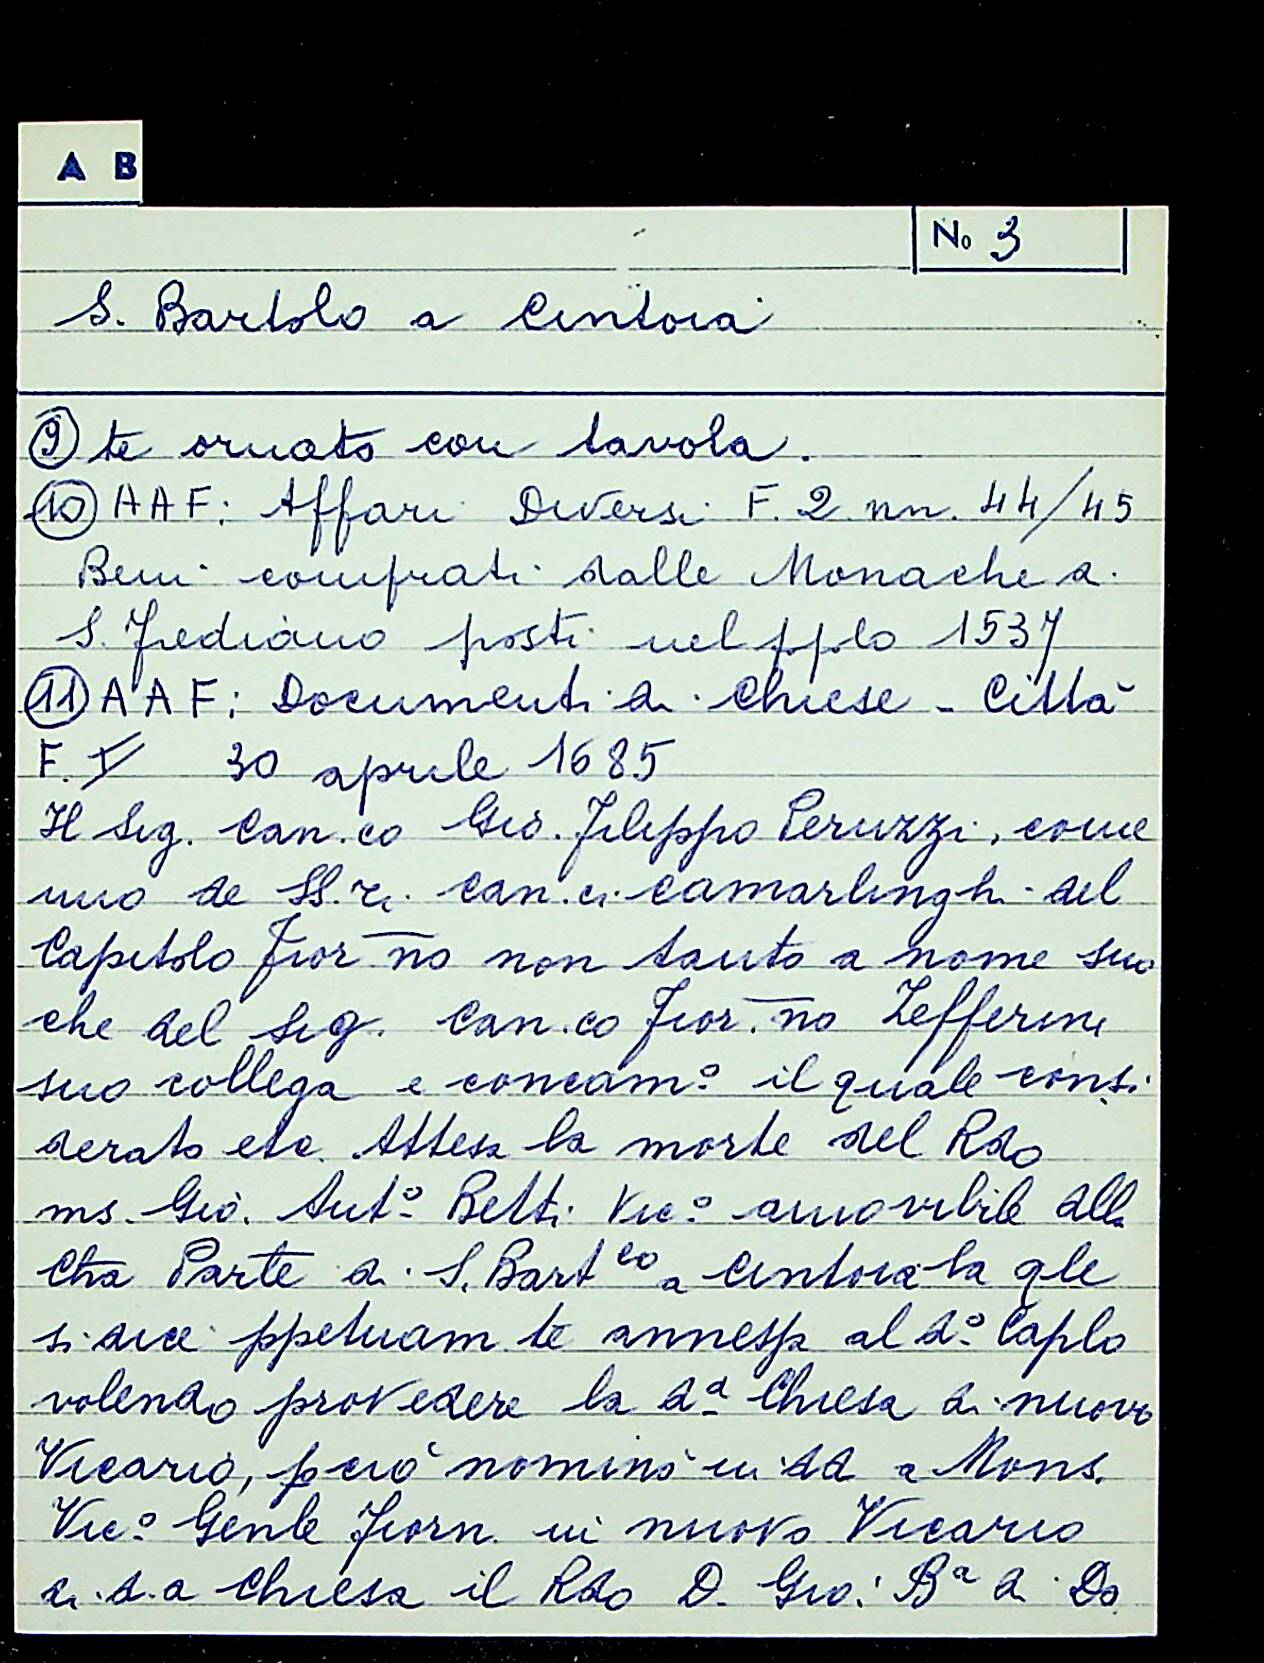 A B
No 3
S. Bartolo a Cintoia
9 te ornato con tavola.
10 AAF: Affari Diversi F. 2 nn. 44/45
Beni comprati dalle Monache di
S. Frediano posti nel pplo 1537
11 AAF: Documenti di Chiese - Città
F. V 30 aprile 1685
Il Sig. Can.co Gio. Filippo Peruzzi, come
uno de SS.ri Can.ci camarlinghi del
Capitolo Fior n̅o non tanto a nome suo
che del Sig. Can.co Fior. n̅o Zefferini
suo collega e concam.º il quale consi
derato etc. Attesa la morte del Rdo
ms. Gio. Ant.º Betti Vic.º amovibile alla
Cha Parte di S. Bart eo a Cintoia la qle
si dice ppetuam te annessa al d.º Caplo
volendo provedere la d.ª Chiesa di nuovo
Vicario, pciò nominò in dd a Mons.
Vic.º Genle Fiorn in nuovo Vicario
di d.a Chiesa il Rdo D. Gio: Bª di Do